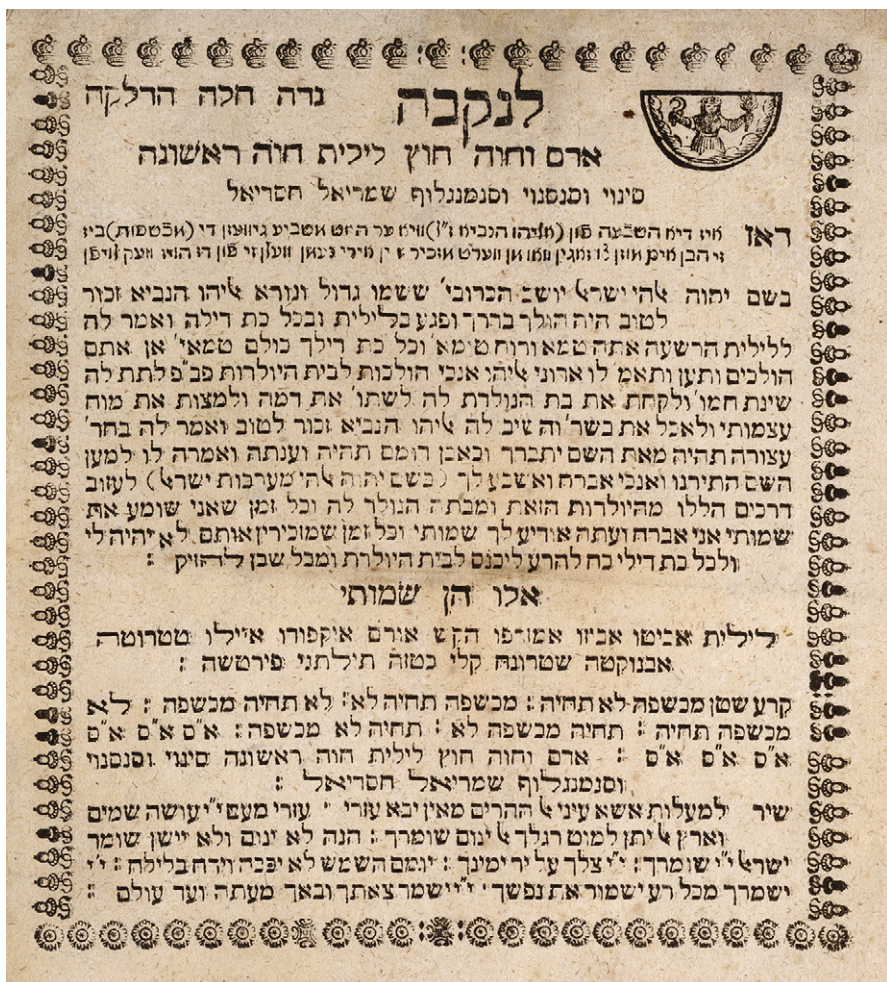 לנקבה נדה חלה הדלקה
אדם וחוה חוץ לילית חוה ראשונה
סינוי וסנסנוי וסנמנגלוף שמריאל חסדיאל
דאז איז דיא השבעה פון (אליהו הנביא ז"ל) וויא ער האט משביע גיוועזן די
בשם יהוה אלהי ישראל יושב הכרובי' ששמו גדול ונורא אליהו הנביא זכור
לטוב היה הולך בדרך ופגע בלילית ובכל כת דילה ואמר לה
ללילית הרשעה אתה טמא ורוח טימא' וכל כת דילך כולם טמאי' אן אתם
הולכים ותען ותאמ' לו אדוני אליהו אנכי הולכות לבית היולדות פב"פ לתת לה
שינת חמו' ולקחת את בת הנולדת לה לשתו' את דמה ולמצות את מוח
עצמותי ולאכל את בשר' והשיב לה אליהו הנביא זכור לטוב ואמר לה בחר'
עצורה תהיה מאת השם יתברך וכאבן דומם תהיה וענתה ואמרה לו למען
השם התירנו ואנכי אברח ואשבע לך (בשם יהוה אלהי מערכות ישראל) לעזוב
דרכים הללו מהיולדות הזאת ומבתה הנולד לה וכל זמן שאני שומע את
שמותי אני אברח ועתה אודיע לך שמותי וכל זמן שמזכירין אותם לא יהיה לי
ולכל כת דילי כח להרע ליכנס לבית היולדת ומכל שכן להזיק :
אלו הן שמותי
לילית אביטו אביזו אמזרפו הקש אודם איקפודו איילו טטרוטה
אבנוקטה שטרונה קלי כטזה תילתני פירטשה :
קרע שטן מכשפה לא תחיה : מכשפה תחיה לא : לא תחיה מכשפה : לא
מכשפה תחיה : תחיה מכשפה לא : תחיה לא מכשפה : א"ס א"ס א"ס
א"ס א"ס א"ס : אדם וחוה חוץ לילית חוה ראשונה סינוי וסנסנוי
וסנמנגלוף שמריאל חסדיאל :
שיר למעלות אשא עיני אל ההרים מאין יבא עזרי : עזרי מעם י"י עושה שמים
וארץ אל יתן למוט רגלך אל ינום שומרך : הנה לא ינום ולא יישן שומר
ישראל י"י שומרך : י"י צלך על יד ימינך : יומם השמש לא יככה וירח בלילה : י"י
ישמרך מכל רע ישמור את נפשך : י"י ישמר צאתך ובאך מעתה ועד עולם :